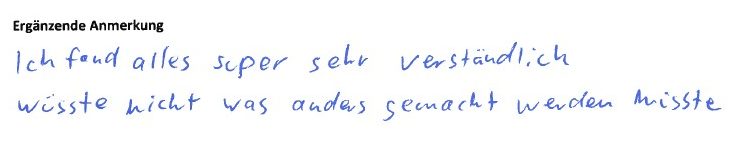 Ergänzende Anmerkung
Ich fand alles super sehr verständlich
wüsste nicht was anders gemacht werden müsste